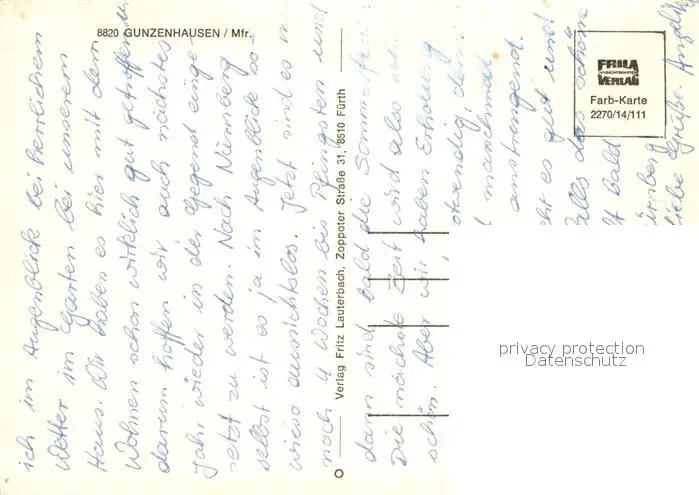 8820 GUNZENHAUSEN / Mfr.
ich im Augenblick bei herrlichem
Wetter im Garten bei unserem
Haus. Wir haben es hier mit dem
Wohnen schon wirklich gut getroffen u.
darum hoffen wir auch nächstes
Jahr wieder in der Gegend einge-
setzt zu werden. Nach Nürnberg
selbst ist es ja im Augenblick so-
wieso aussichtslos. Jetzt sind es
noch 4 Wochen bis Pfingsten und
Verlag Fritz Lauterbach, Zoppoter Straße 31, 8510 Fürth
dann sind bald die Sommerferien
Die nächste Zeit wird also sehr
schön. Aber wir haben Erholung
manchmal
anstrengend.
es gut und
alles das schöne
bald
liebe Grüße.
FRILA
ANSICHTSKARTEN
VERLAG
Farb-Karte
2270/14/111
privacy protection
Datenschutz